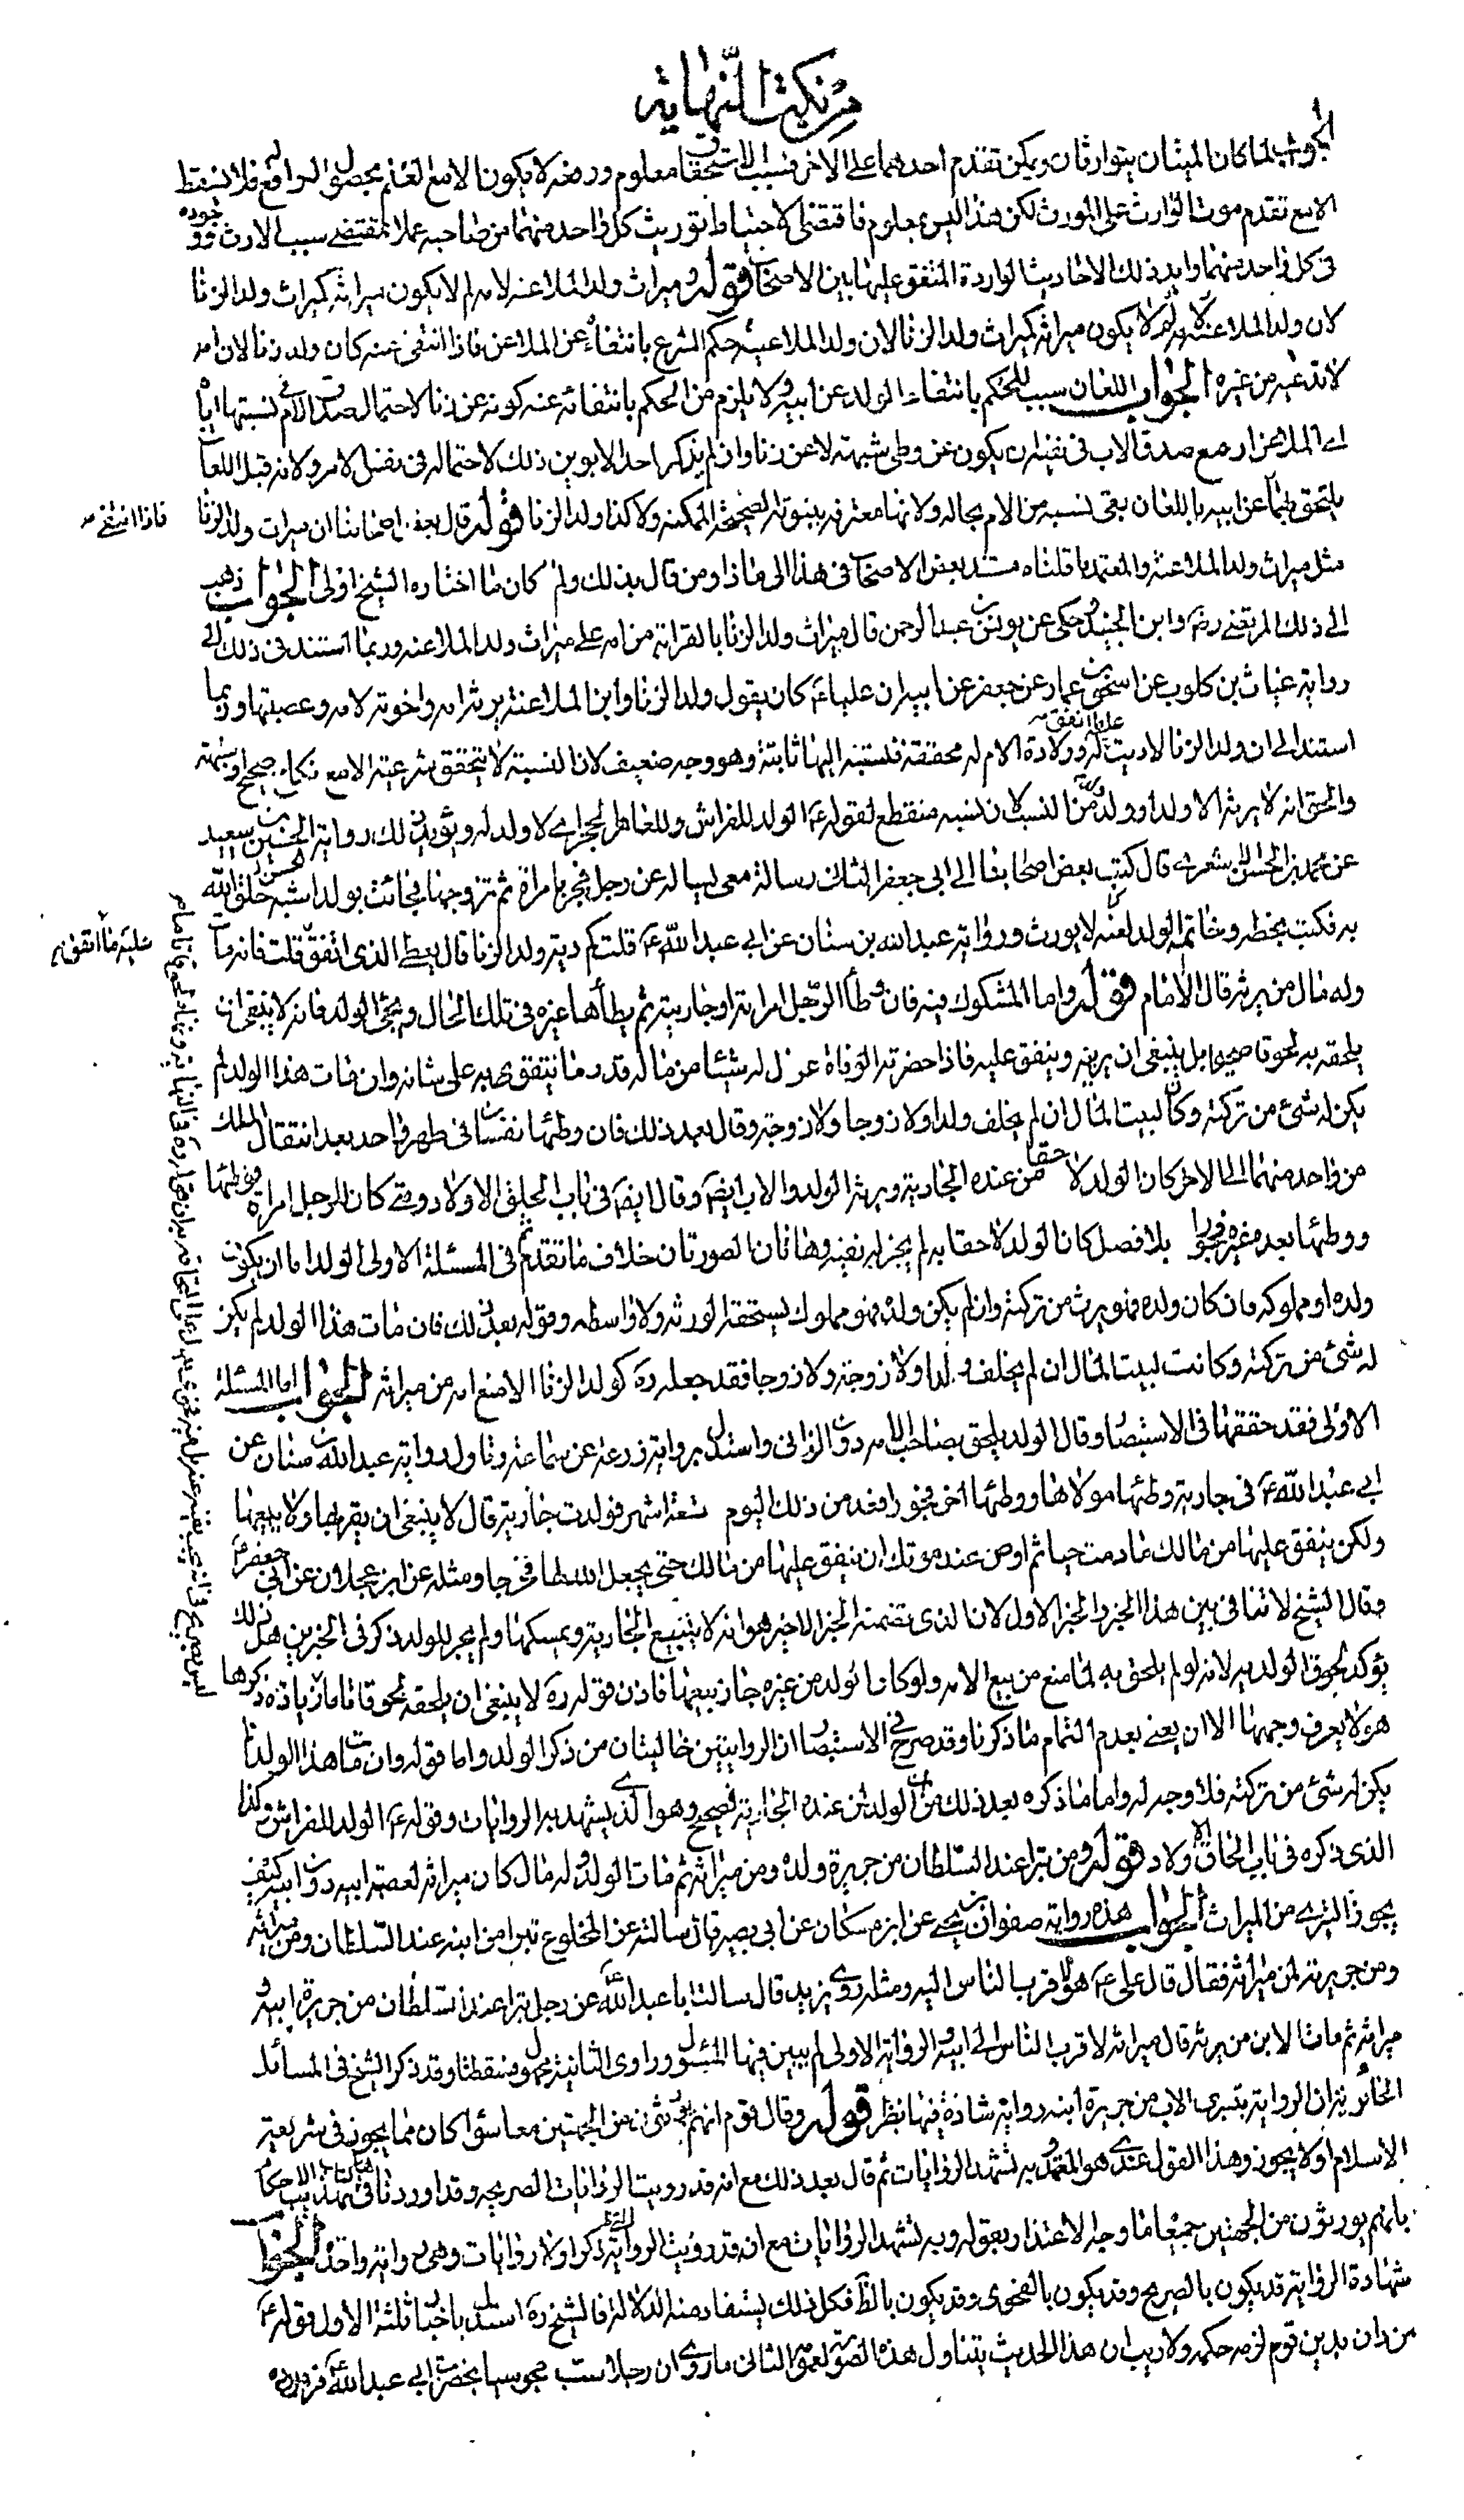 من نكت النهاية
الجواب لما كان الميتان يتوارثان ويمكن تقدم احدهما على الآخر فسبب الاستحقاق معلوم ورفعه لا يكون الا مع العلم بحصول الرافع فلا يسقط
الا مع تقدم موت الوارث على المورث لكن هذا ليس بمعلوم فاقتضى الاحتياط توريث كل واحد منهما من صاحبه عملا بمقتضى سبب الارث ووجوده
فى كل واحد منهما وايد ذلك الاحاديث الواردة المتفق عليها بين الاصحاب قوله وميراث ولد الملاعنة لامه لم لا يكون ميراثه كميراث ولد الزنا
لان ولد الملاعنة لامه لم لا يكون ميراثه كميراث ولد الزنا لان ولد الملاعنة حكم الشرع بانتفائه عن الملاعن فاذا انتفى عنه كان ولد زنا لان امه
لا تدعيه من غيره الجواب اللعان سبب للحكم بانتفاء الولد عن ابيه ولا يلزم من الحكم بانتفائه عنه كونه عن زنا لاحتمال صدق الام فى نسبتها اياه
الى الملاعن او مع صدق الاب فى نفيه ان يكون عن وطى شبهة لا عن زنا وان لم يذكر احد الابوين ذلك لاحتماله فى نفس الامر ولانه قبل اللعان
يلتحق بهما عن ابيه باللعان بقى نسبه من الام بحاله ولانها معترفة ببنوته الصحيحة الممكنة ولا كذا ولد الزنا قوله قال بعض اصحابنا ان ميراث ولد الزنا
فاذا انتفى
مثل ميراث ولد الملاعنة والمعتمد ما قلناه مستند بعض الاصحاب فى هذا الى ماذا ومن قال بذلك ولم كان ما اختاره الشيخ اولى الجواب ذهب
الى ذلك المرتضى ره وابن الجنيد وحكى عن يونس بن عبد الرحمن قال ميراث ولد الزنا بالقرابة من امه على ميراث ولد الملاعنة وربما استند فى ذلك الى
رواية غياث بن كلوب عن اسحق بن عمار عن جعفر عن ابيه ان عليا ع كان يقول ولد الزنا وابن الملاعنة يرثه امه واخوته لامه وعصبتها وربما
استند الى ان ولد الزنا لا دية له وولادة الام له محققة فنسبته اليها ثابتة وهو وجه ضعيف لان النسبة لا يتحقق شرعية الا مع نكاح صحيح او شبهة
والحق انه لا يرثه الا ولد او ولده من النسب لان نسبه منقطع لقوله ع الولد للفراش وللعاهر الحجر اى لا ولد له ويؤيد ذلك رواية الحسين بن سعيد
عن محمد بن الحسن الاشعرى قال كتب بعض اصحابنا الى ابى جعفر الثانى رسالة معى يسئاله عن رجل فجر بامراة ثم تزوجها فجائت بولد اشبه خلق الله
به فكتب بخطه وخاتمه الولد لغية لا يورث ورواية عبد الله بن سنان عن ابى عبد الله ع قلت كم دية ولد الزنا قال يعطى الذى انفق قلت فانه مات
عليه ما انفق
وله مال من يرثه قال الامام قوله واما المشكوك فيه فان وطأ الرجل امراته او جاريته ثم يطأها غيره فى تلك الحال ويجئ الولد فانه لا ينبغى ان
يلحقه به لحوقا صحيحا بل ينبغى ان يربيه وينفق عليه فاذا حضرته الوفاة عزل له شيئا من ماله قدر ما يتقوى به على شانه وان مات هذا الولد لم
يكن له شئ من تركته وكان لبيت المال ان لم يخلف ولدا ولا زوجا ولا زوجة وقال بعد ذلك فان وطئها نفسان فى طهر واحد بعد انتقال الملك
من واحد منهما الى الاخر كان الولد لاحقا بمن عنده الجارية ويرثه الولد والاب ايضا وقال ايضا فى باب الحاق الاولاد ومتى كان للرجل امراة فوطئها
ووطئها بعده غيره فجورا بلا فصل كان الولد لاحقا به لم يجز له نفيه وهاتان الصورتان خلاف ما تقدم ثم فى المسئلة الاولى الولد اما ان يكون
ولده او مملوكه فان كان ولده فهو يرث من تركته وان لم يكن ولده فهو مملوك يستحقه الورثة ولا واسطة وقوله بعد ذلك فان مات هذا الولد لم يكن
له شئ من تركته وكانت لبيت المال ان لم يخلف ولدا ولا زوجة ولا زوجا فقد جعله ره كولد الزنا الا منع امه من ميراثه الجواب اما المسئلة
الاولى فقد حققها فى الاستبصار وقال الولد يلحق بصاحب الامر دون الزانى واستدل برواية زرعة عن سماعة وتاول رواية عبد الله بن سنان عن
ابى عبد الله ع فى جارية وطئها مولاها ووطئها اخر فجورا فعد من ذلك اليوم تسعة اشهر فولدت جارية قال لا ينبغى ان يقربها ولا يبيعها
ولكن ينفق عليها من مالك ما دمت حيا ثم اوص عند موتك ان ينفق عليها من مالك حتى يجعل الله لها مخرجا ومثله عن ابن عجلان عن ابى جعفر ع
وقال الشيخ لا تنافى بين هذا الخبر والخبر الاول لان الذى تضمنه الخبر الاخير هو انه لا يبيع الجارية ويمسكها ولم يجر للولد ذكر فى الخبرين بل ذلك
يؤكد لحوق الولد به لانه لو لم يلحق به لما منع من بيع الامه ولو كان الولد من غيره جاز بيعها فاذن قوله ره لا ينبغى ان يلحقه لحوقا تاما زيادة ذكرها
هو لا يعرف وجهها الا ان يعنى بعدم التمام ما ذكرنا وقد صرح فى الاستبصار ان الروايتين خاليتان من ذكر الولد واما قوله وان مات هذا الولد لم
يكن له شئ من تركته فلا وجه له واما ما ذكره بعد ذلك من ان الولد لمن عنده الجارية فصحيح وهو الذى يشهد به الروايات وقوله ع الولد للفراش وكذا
الذى ذكره فى باب الحاق الاولاد قوله ومن تبرا عند السلطان من جريرة ولده ومن ميراثه ثم مات الولد وله مال كان ميراثه لعصبة ابيه دون ابيه كيف
يجوز التبرى من الميراث الجواب هذه رواية صفوان بن يحيى عن ابن مسكان عن ابى بصير قال سالته عن المخلوع تبرا من ابنه عند السلطان ومن ميراثه
ومن جريرته لمن ميراثه فقال قال على ع هو لاقرب الناس اليه ومثله روى يزيد قال سالت ابا عبد الله ع عن رجل تبرا عند السلطان من جريرة ابنه و
ميراثه ثم مات الابن من يرثه قال ميراثه لاقرب الناس الى ابيه والرواية الاولى لم يبين فيها المسئول وراوى الثانية مجهول فسقطتا وقد ذكر الشيخ فى المسائل
الحائرية ان الرواية بتبرى الاب من جريرة ابنه رواية شاذة فيها نظر قوله وقال قوم انهم يورثون من الجهتين معا سواء كان مما يجوز فى شريعة
الاسلام او لا يجوز وهذا القول عندى هو المعتمد وبه تشهد الروايات ثم قال بعد ذلك مع انه قد رويت الروايات الصريحة وقد اوردناها فى كتاب تهذيب الاحكام
بانهم يورثون من الجهتين جميعا ما وجه الاعتذار بقوله وبه تشهد الروايات مع ان قد رويت الرواية ذكر اولا روايات وهى رواية واحدة الجواب
شهادة الرواية قد يكون بالصريح وقد يكون بالفحوى وقد يكون بالظاهر فكل ذلك يستفاد منه الدلالة فالشيخ ره استدل باخبار ثلثة الاول قوله ع
من دان بدين قوم لزمه حكمه ولا ريب ان هذا الحديث يتناول هذه الصورة لعمومه الثانى ما روى ان رجلا سب مجوسيا بحضرة ابى عبد الله ع فزبره